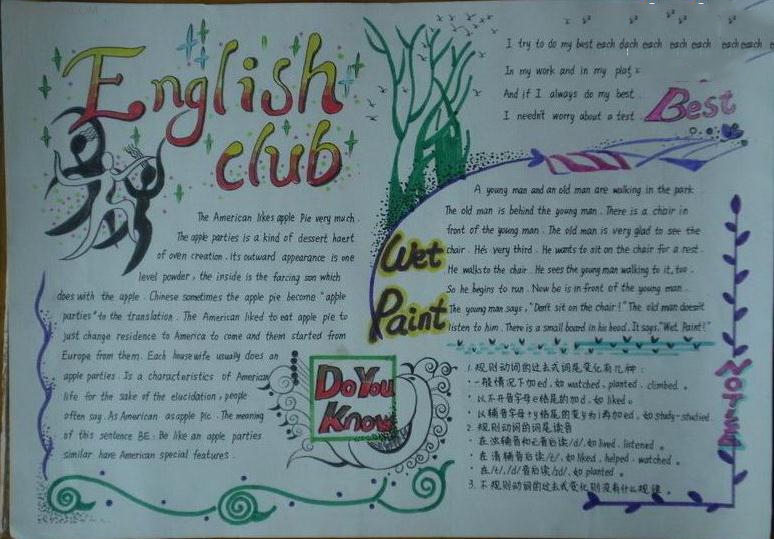 English
club
The American likes apple Pie very much.
The apple parties is a kind of dessert haert
of oven creation. Its outward appearance is one
level powder, the inside is the farcing son which
does with the apple. Chinese sometimes the apple pie become "apple
parties" to the translation. The American liked to eat apple pie to
just change residence to America to come and them started from
Europe from them. Each housewife usually does an
apple parties. Is a characteristics of American
life for the sake of the elucidation, people
often say. As American as apple pic. The meaning
of this sentence BE: Be like an apple parties
similar have American special features.
Do You
Know
I try to do my best each each each each each each
In my work and in my
And if I always do my best
I needn't worry about a test.
Best
Wet
Paint
A young man and an old man are walking in the park.
The old man is behind the young man. There is a chair in
front of the young man. The old man is very glad to see the
chair. He's very third. He wants to sit on the chair for a rest.
He walks to the chair. He sees the young man walking to it, too.
So he begins to run. Now be is in front of the young man.
The young man says, "Don't sit on the chair!" The old man doesn't
listen to him. There is a small board in his head. It says, "Wet Paint!"
1. 规则动词的过去式词是变化有几种:
· 一般情况下加ed, 如 watched, planted. climbed。
· 以不开音字母e结尾的加d, 如 liked。
· 以辅音字母+y结尾的变y为i再加ed, 如 study-studied
2. 规则动词的词是读音
· 在浊辅音和元音后读/d/, 如 lived, listened。
· 在清辅音后读/t/, 如 liked, helped, watched。
· 在/t/, /d/音后读/id/, 如 planted。
3. 不规则动词的过去式变化则没有什么规律。